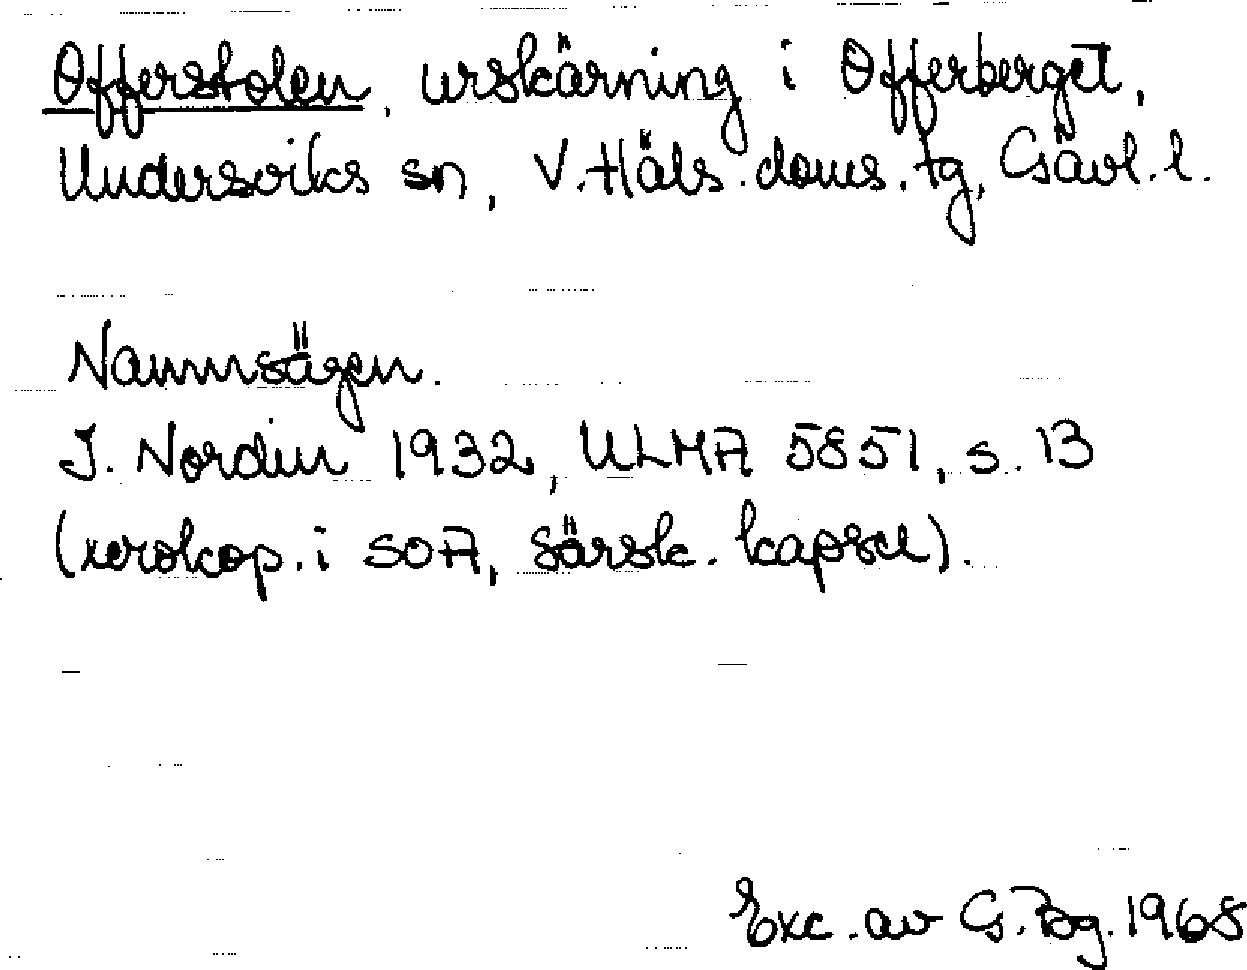 Offerstolen, urskärning i Offerberget,
Undersviks sn, V. Häls. doms. tg, Gävl. l.
Namnsägen.
J. Nordin 1932, ULMA 5851, s. 13
(xerokop. i SOA, särsk. kapsel).
Exc. av G. Bg. 1968